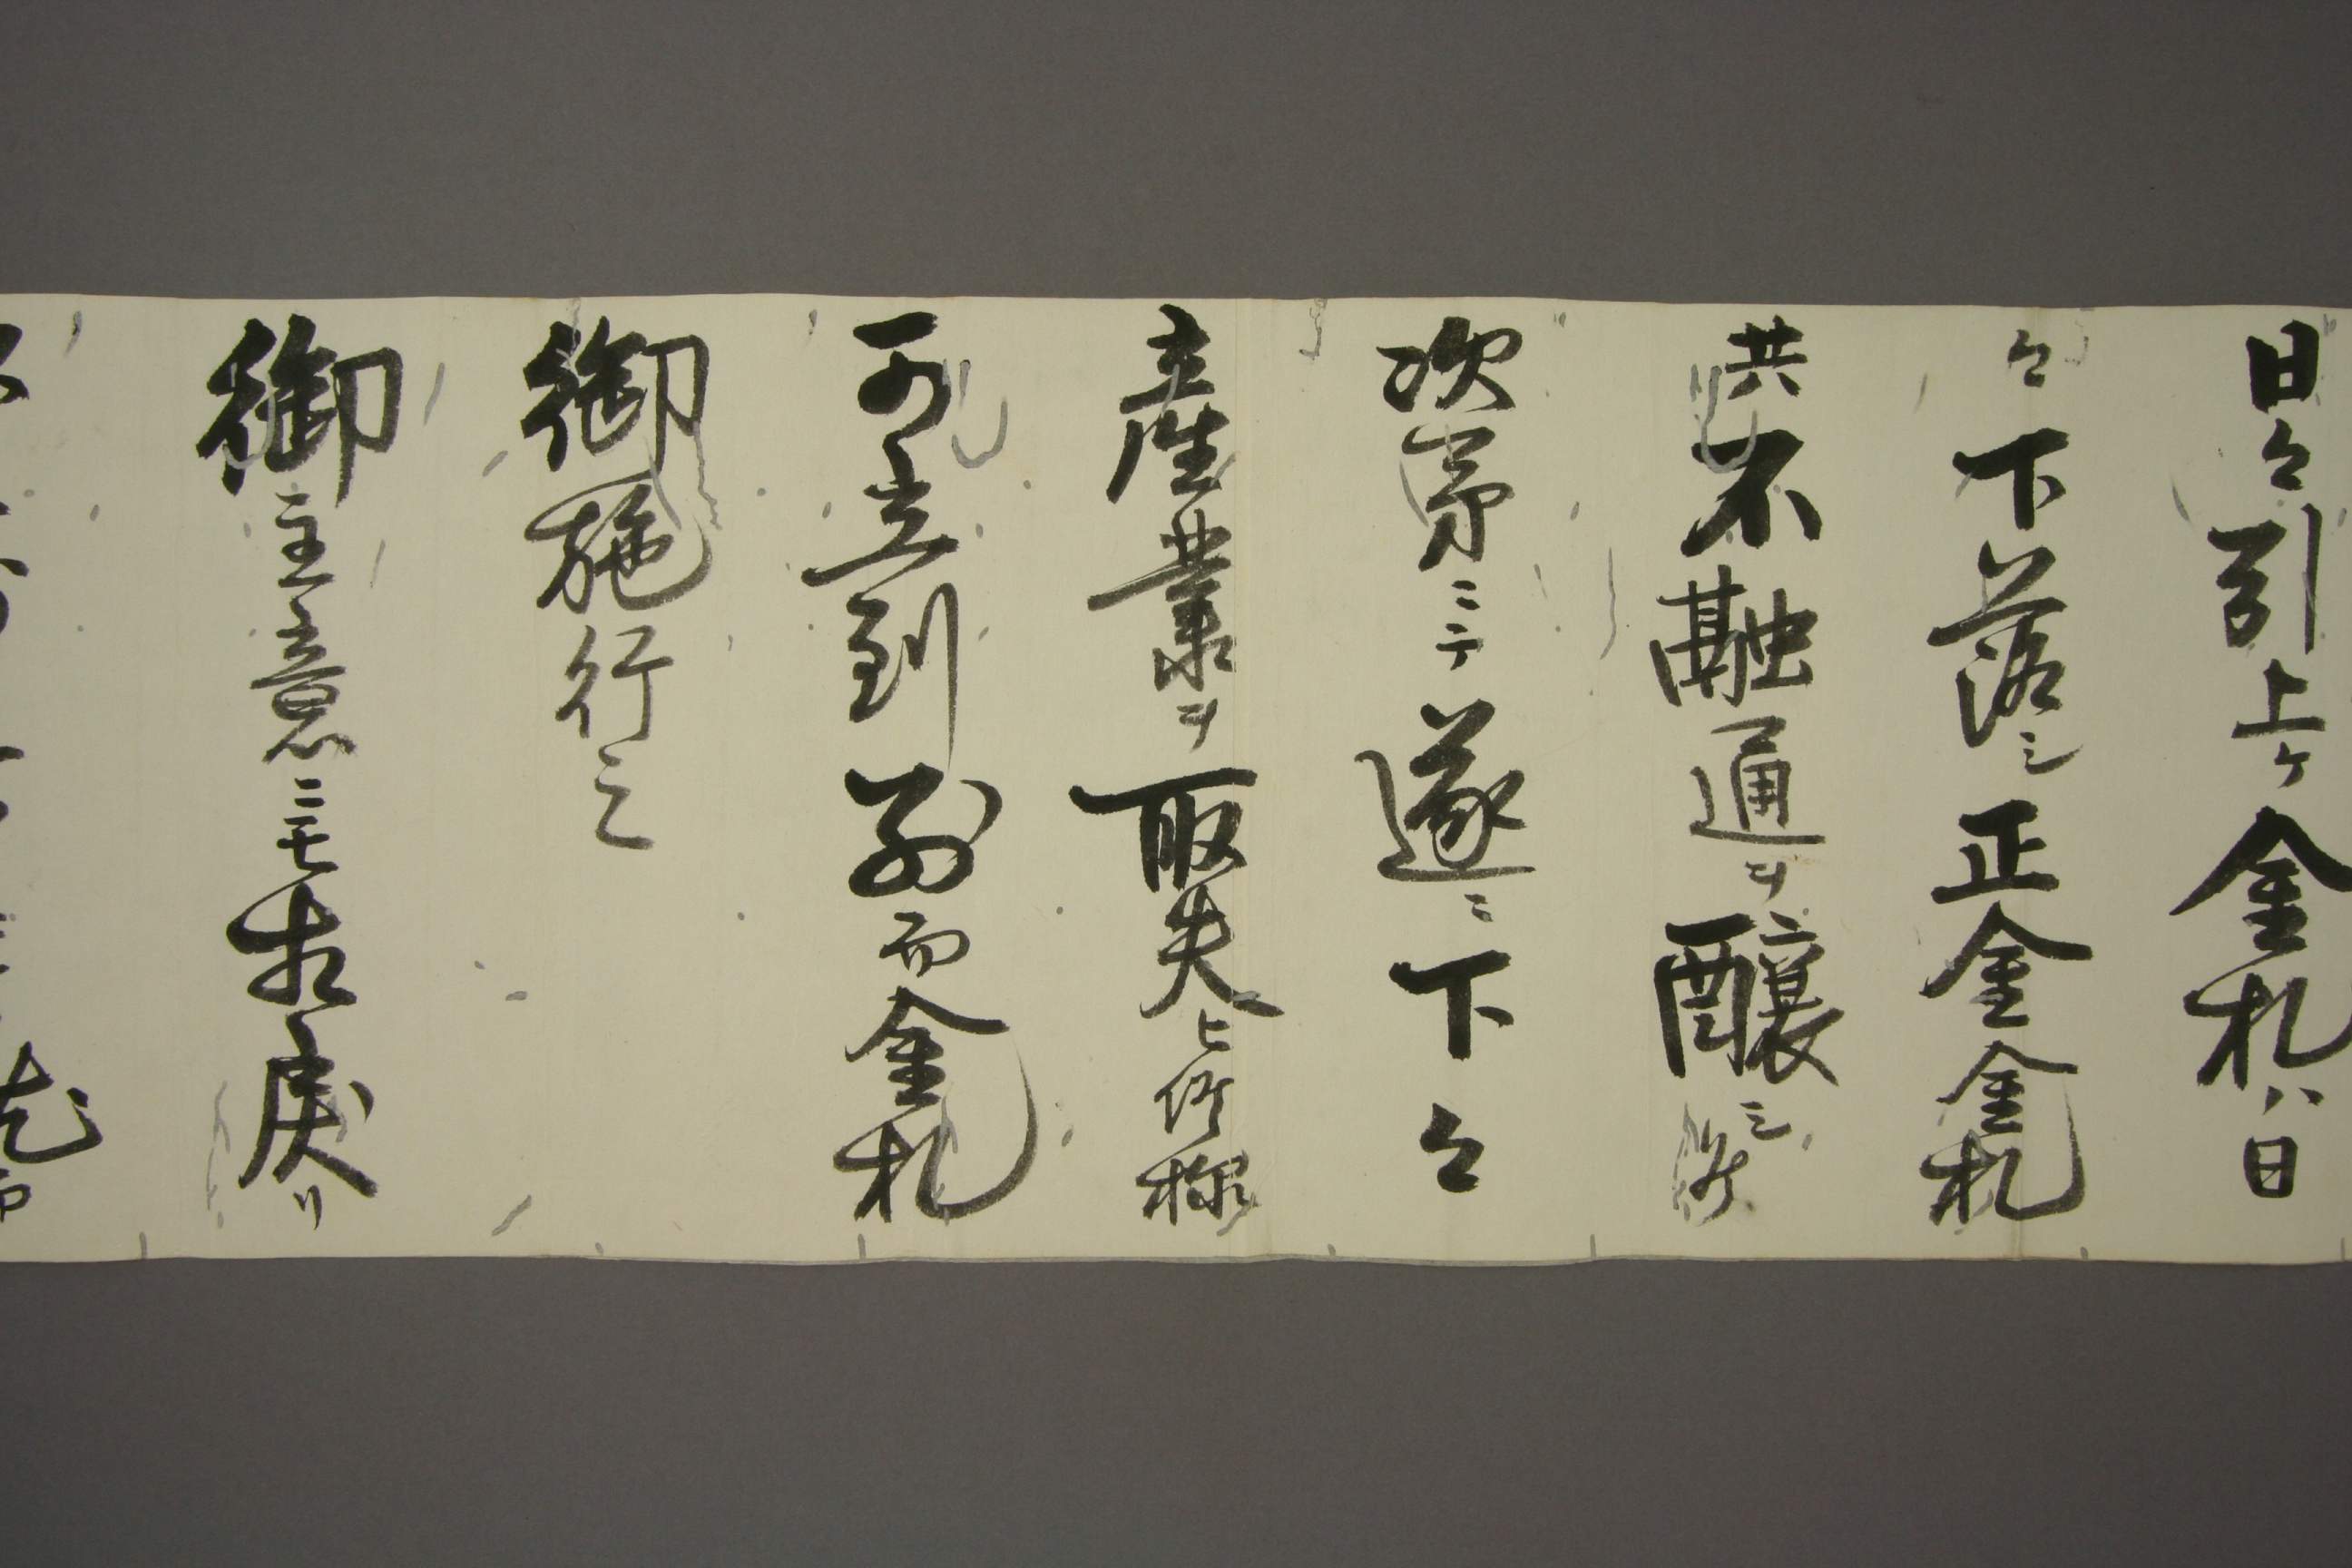 日々引上ケ金札ハ日
々下落シ正金金札
共不融通ヲ醸シ候
次第ニテ遂ニ下々
産業ヲ取失ヒ候様
可立到別而金札
御施行之
御主意ニモ相戻リ